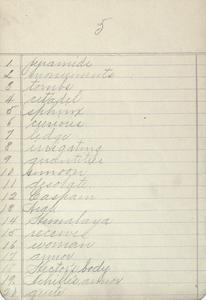 5
1. pyramids
2 monuments
3 tombs
4 citadel
5 sphinx
6 curious
7 ledge
8 irrigating
9 quantities
10
11 desolate
12 Caspain
13
14 Himalaya
15 receives
16 woman
17 armor
18 Hector's body
19. Achilles, armor
20.